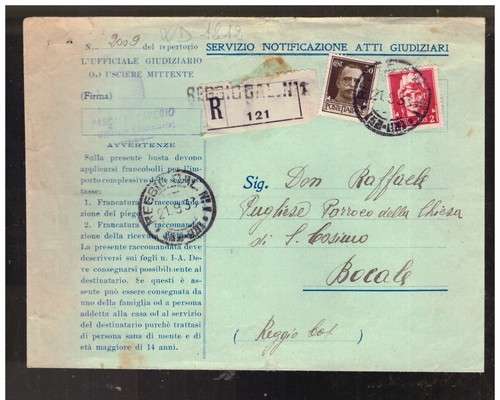 N. 2009 del repertorio
L'UFFICIALE GIUDIZIARIO
OD USCIERE MITTENTE
(Firma)
AVVERTENZE
Sulla presente busta devono
applicarsi francobolli per l'im-
porto complessivo delle seguenti
tasse:
1. Francatura e raccomanda-
zione del piego
2. Francatura e raccomanda-
zione della ricevuta
La presente raccomandata deve
descriversi sui fogli n. 1-A. De-
ve consegnarsi possibilmente al
destinatario. Se questi è as-
sente può essere consegnata da
uno della famiglia od a persona
addetta alla casa od al servizio
del destinatario purchè trattasi
di persona sana di mente e di
età maggiore di 14 anni.
SERVIZIO NOTIFICAZIONE ATTI GIUDIZIARI
REGGIO CAL. N 1
R
121
REGGIO CAL.
21.9.3
Sig. Don Raffaele
Pugliese Parroco della Chiesa
di S. Cosimo
Bocale
(Reggio Cal)